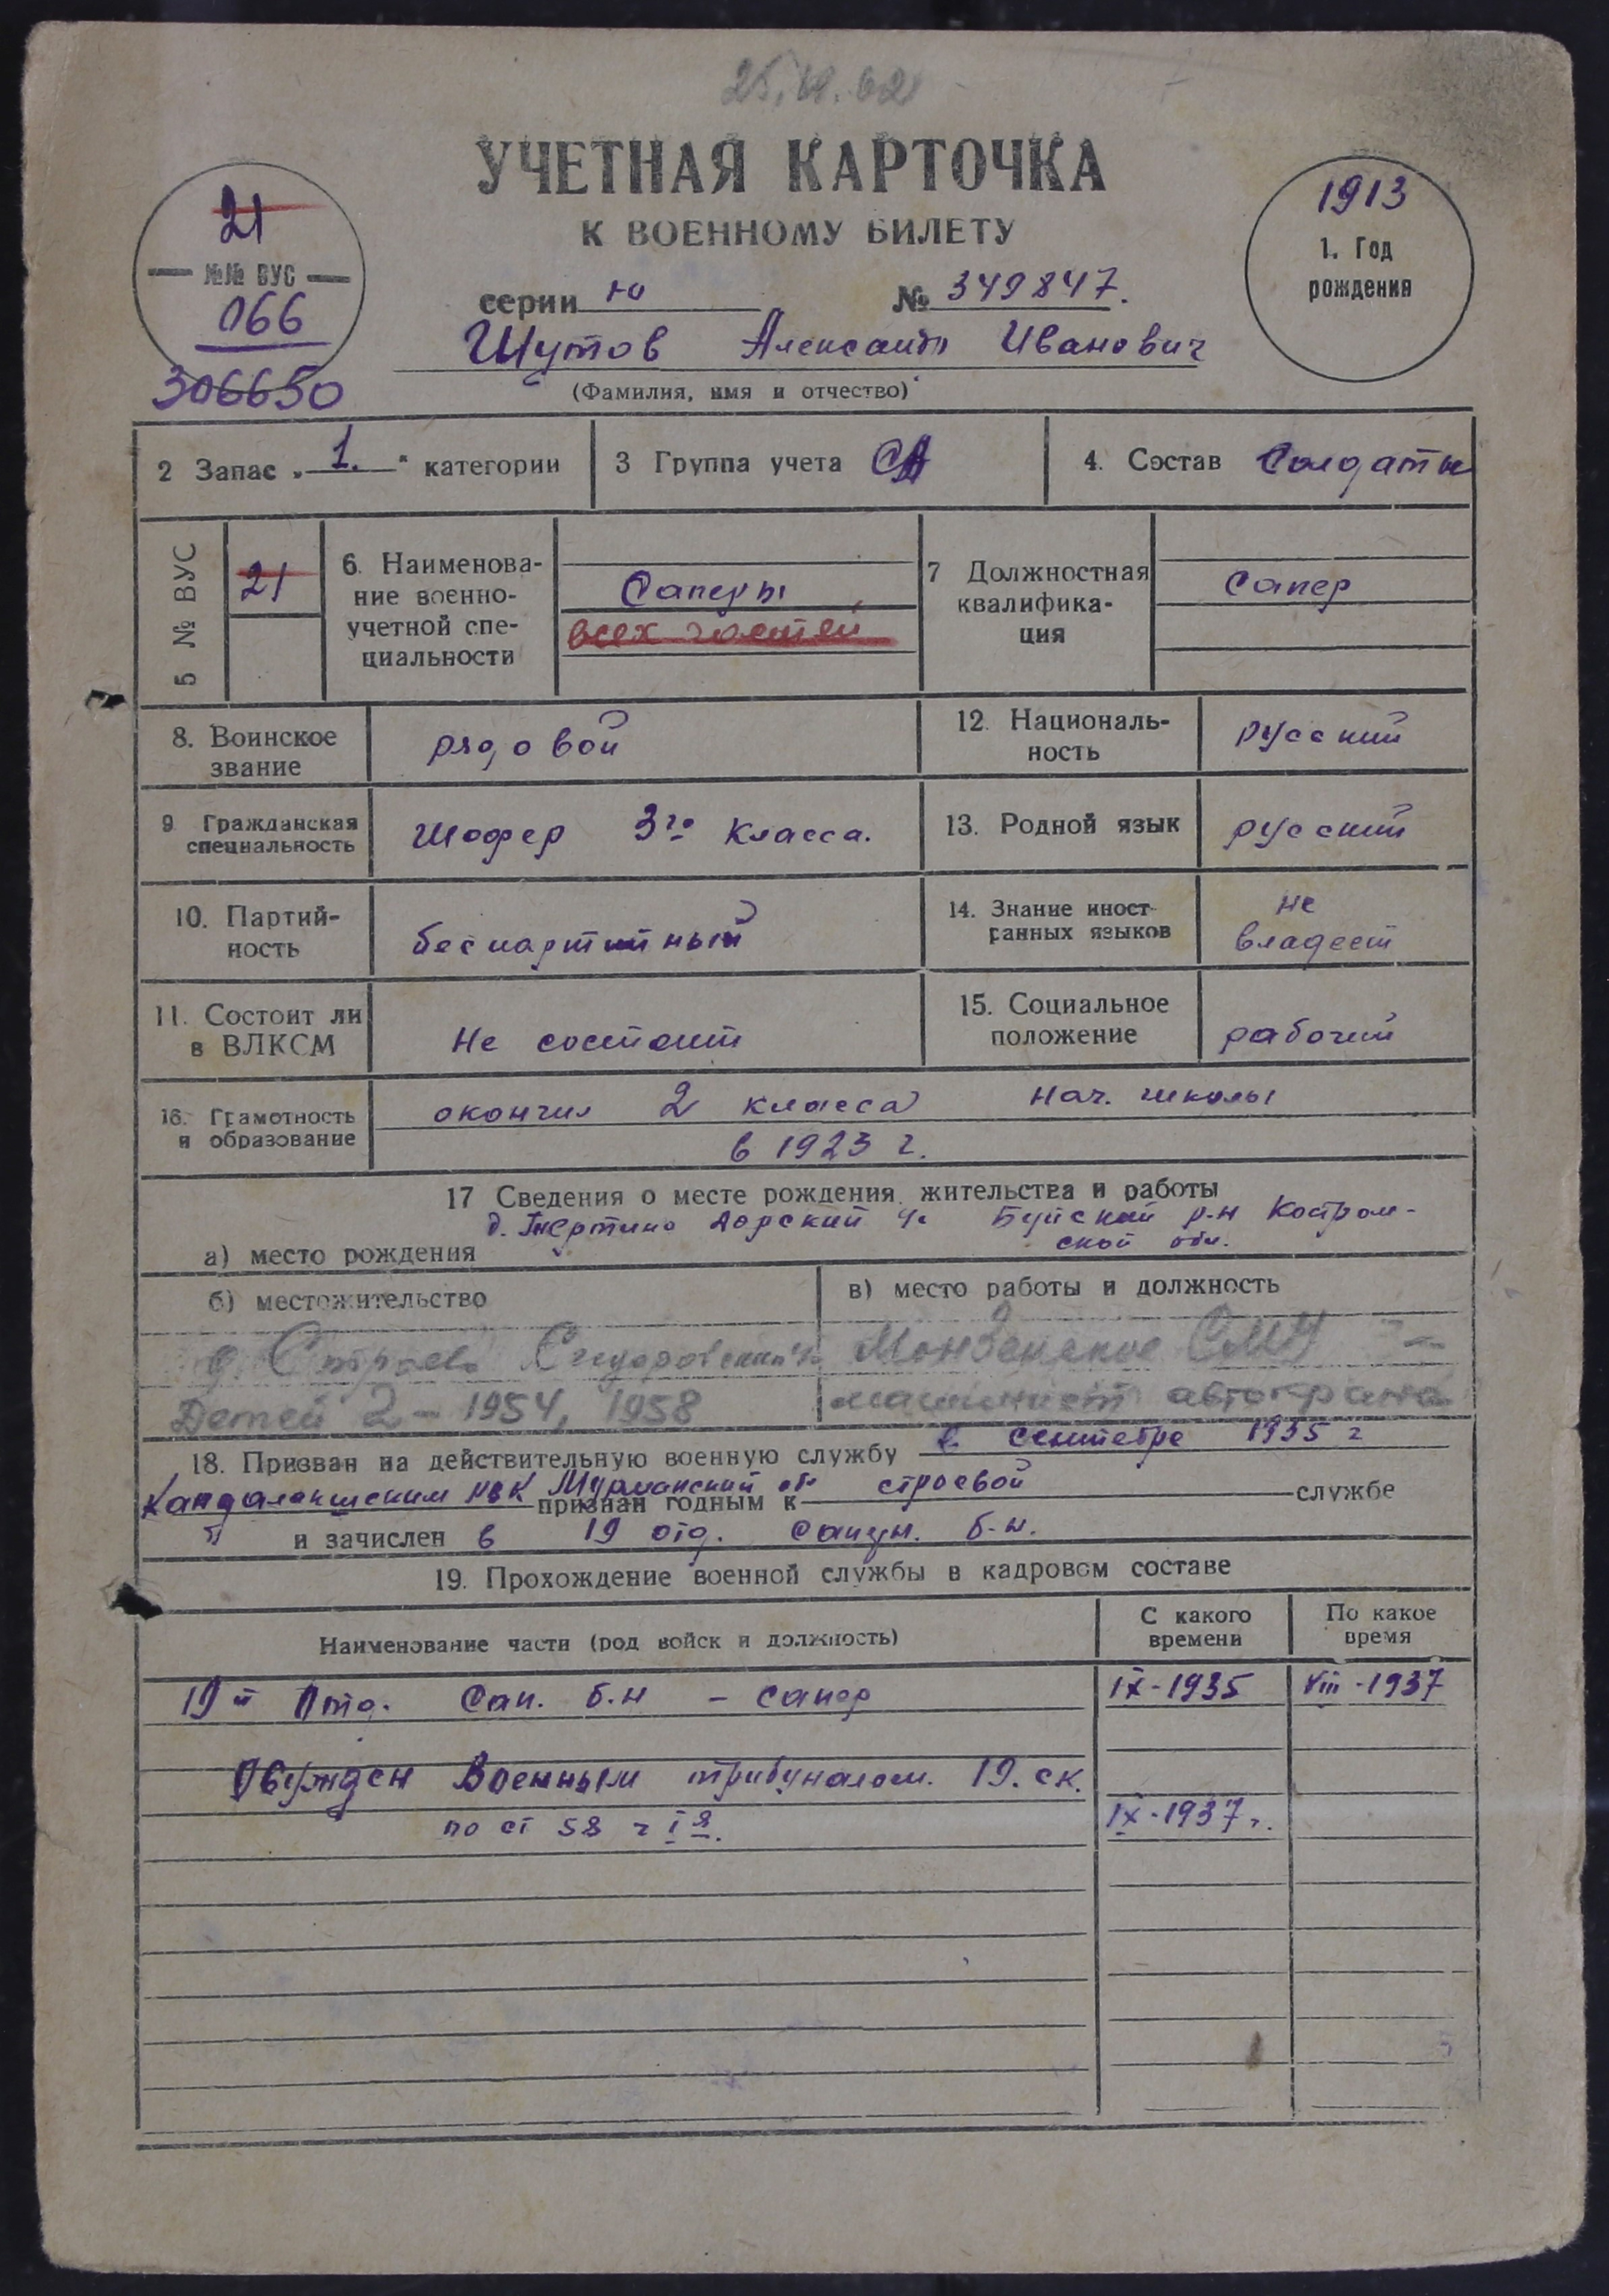 УЧЕТНАЯ КАРТОЧКА
К ВОЕННОМУ БИЛЕТУ
21
№№ ВУС
066
306650
1913
1. Год
рождения
серии Ю № 349847.
Шутов Александр Иванович
(Фамилия, имя и отчество)
2 Запас „1.“ категории
3 Группа учета СА
4. Состав Солдаты
5 № ВУС
21
6. Наименова-
ние военно-
учетной спе-
циальности
Саперы
всех частей
7 Должностная
квалифика-
ция
Сапер
8. Воинское
звание
рядовой
12. Националь-
ность
русский
9 Гражданская
специальность
Шофер 3го класса.
13. Родной язык
русский
10. Партий-
ность
беспартийный
14. Знание иност-
ранных языков
не
владеет
11. Состоит ли
в ВЛКСМ
Не состоит
15. Социальное
положение
рабочий
16. Грамотность
и образование
окончил 2 класса нач. школы
в 1923 г.
17 Сведения о месте рождения, жительства и работы
д. Дорский Буйский р-н Костром-
ской обл.
а) место рождения
б) местожительство
в) место работы и должность
д. СМУ
Детей 2 - 1954, 1958
машинист автокрана
18. Призван на действительную военную службу в сентябре 1935 г
Кандалакшским РВК Мурманский об признан годным к строевой службе
и зачислен в 19 отд. саперн. б-н.
19. Прохождение военной службы в кадровом составе
Наименование части (род войск и должность)
С какого
времени
По какое
время
19й Отд. Сап. б-н - сапер IX-1935 VIII-1937
Осужден Военным трибуналом 19. ск.
по ст 58 IX-1937 г.